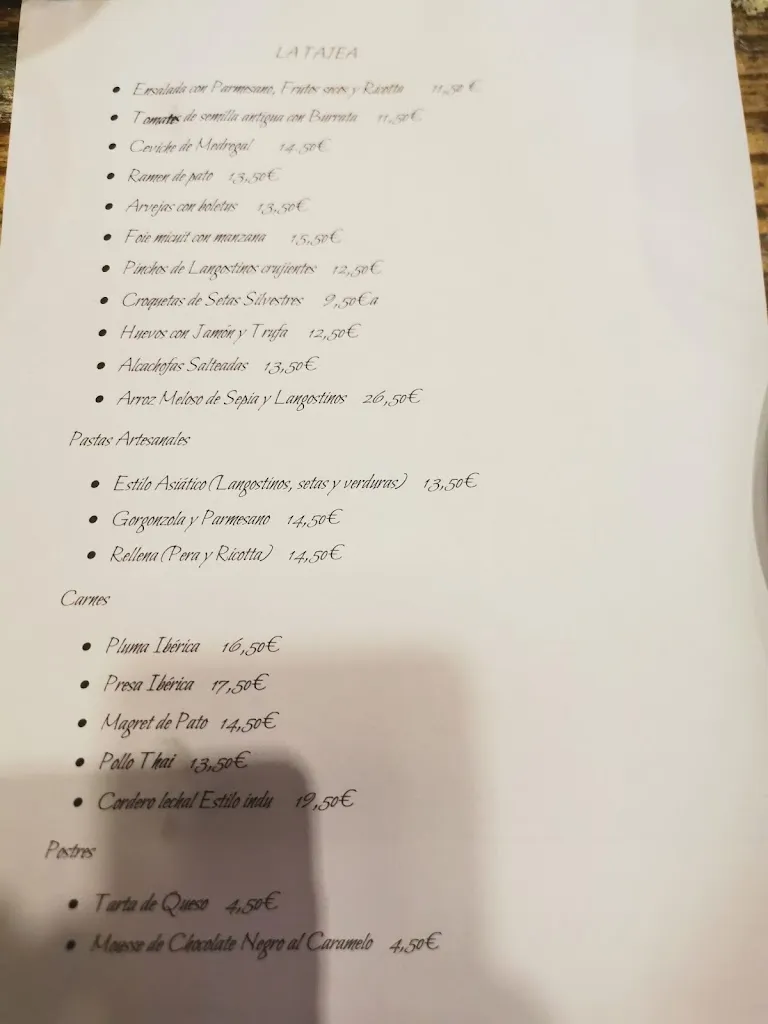 LA TAJEA
• Ensalada con Parmesano, Frutos secos y Ricotta 11,50 €
• Tomates de semilla antigua con Burrata 11,50€
• Ceviche de Medregal 14,50€
• Ramen de pato 13,50€
• Arvejas con boletus 13,50€
• Foie micuit con manzana 15,50€
• Pinchos de Langostinos crujientes 12,50€
• Croquetas de Setas Silvestres 9,50€a
• Huevos con Jamón y Trufa 12,50€
• Alcachofas Salteadas 13,50€
• Arroz Meloso de Sepia y Langostinos 26,50€
Pastas Artesanales
• Estilo Asiático (Langostinos, setas y verduras) 13,50€
• Gorgonzola y Parmesano 14,50€
• Rellena (Pera y Ricotta) 14,50€
Carnes
• Pluma Ibérica 16,50€
• Presa Ibérica 17,50€
• Magret de Pato 14,50€
• Pollo Thai 13,50€
• Cordero lechal Estilo indu 19,50€
Postres
• Tarta de Queso 4,50€
• Mousse de Chocolate Negro al Caramelo 4,50€